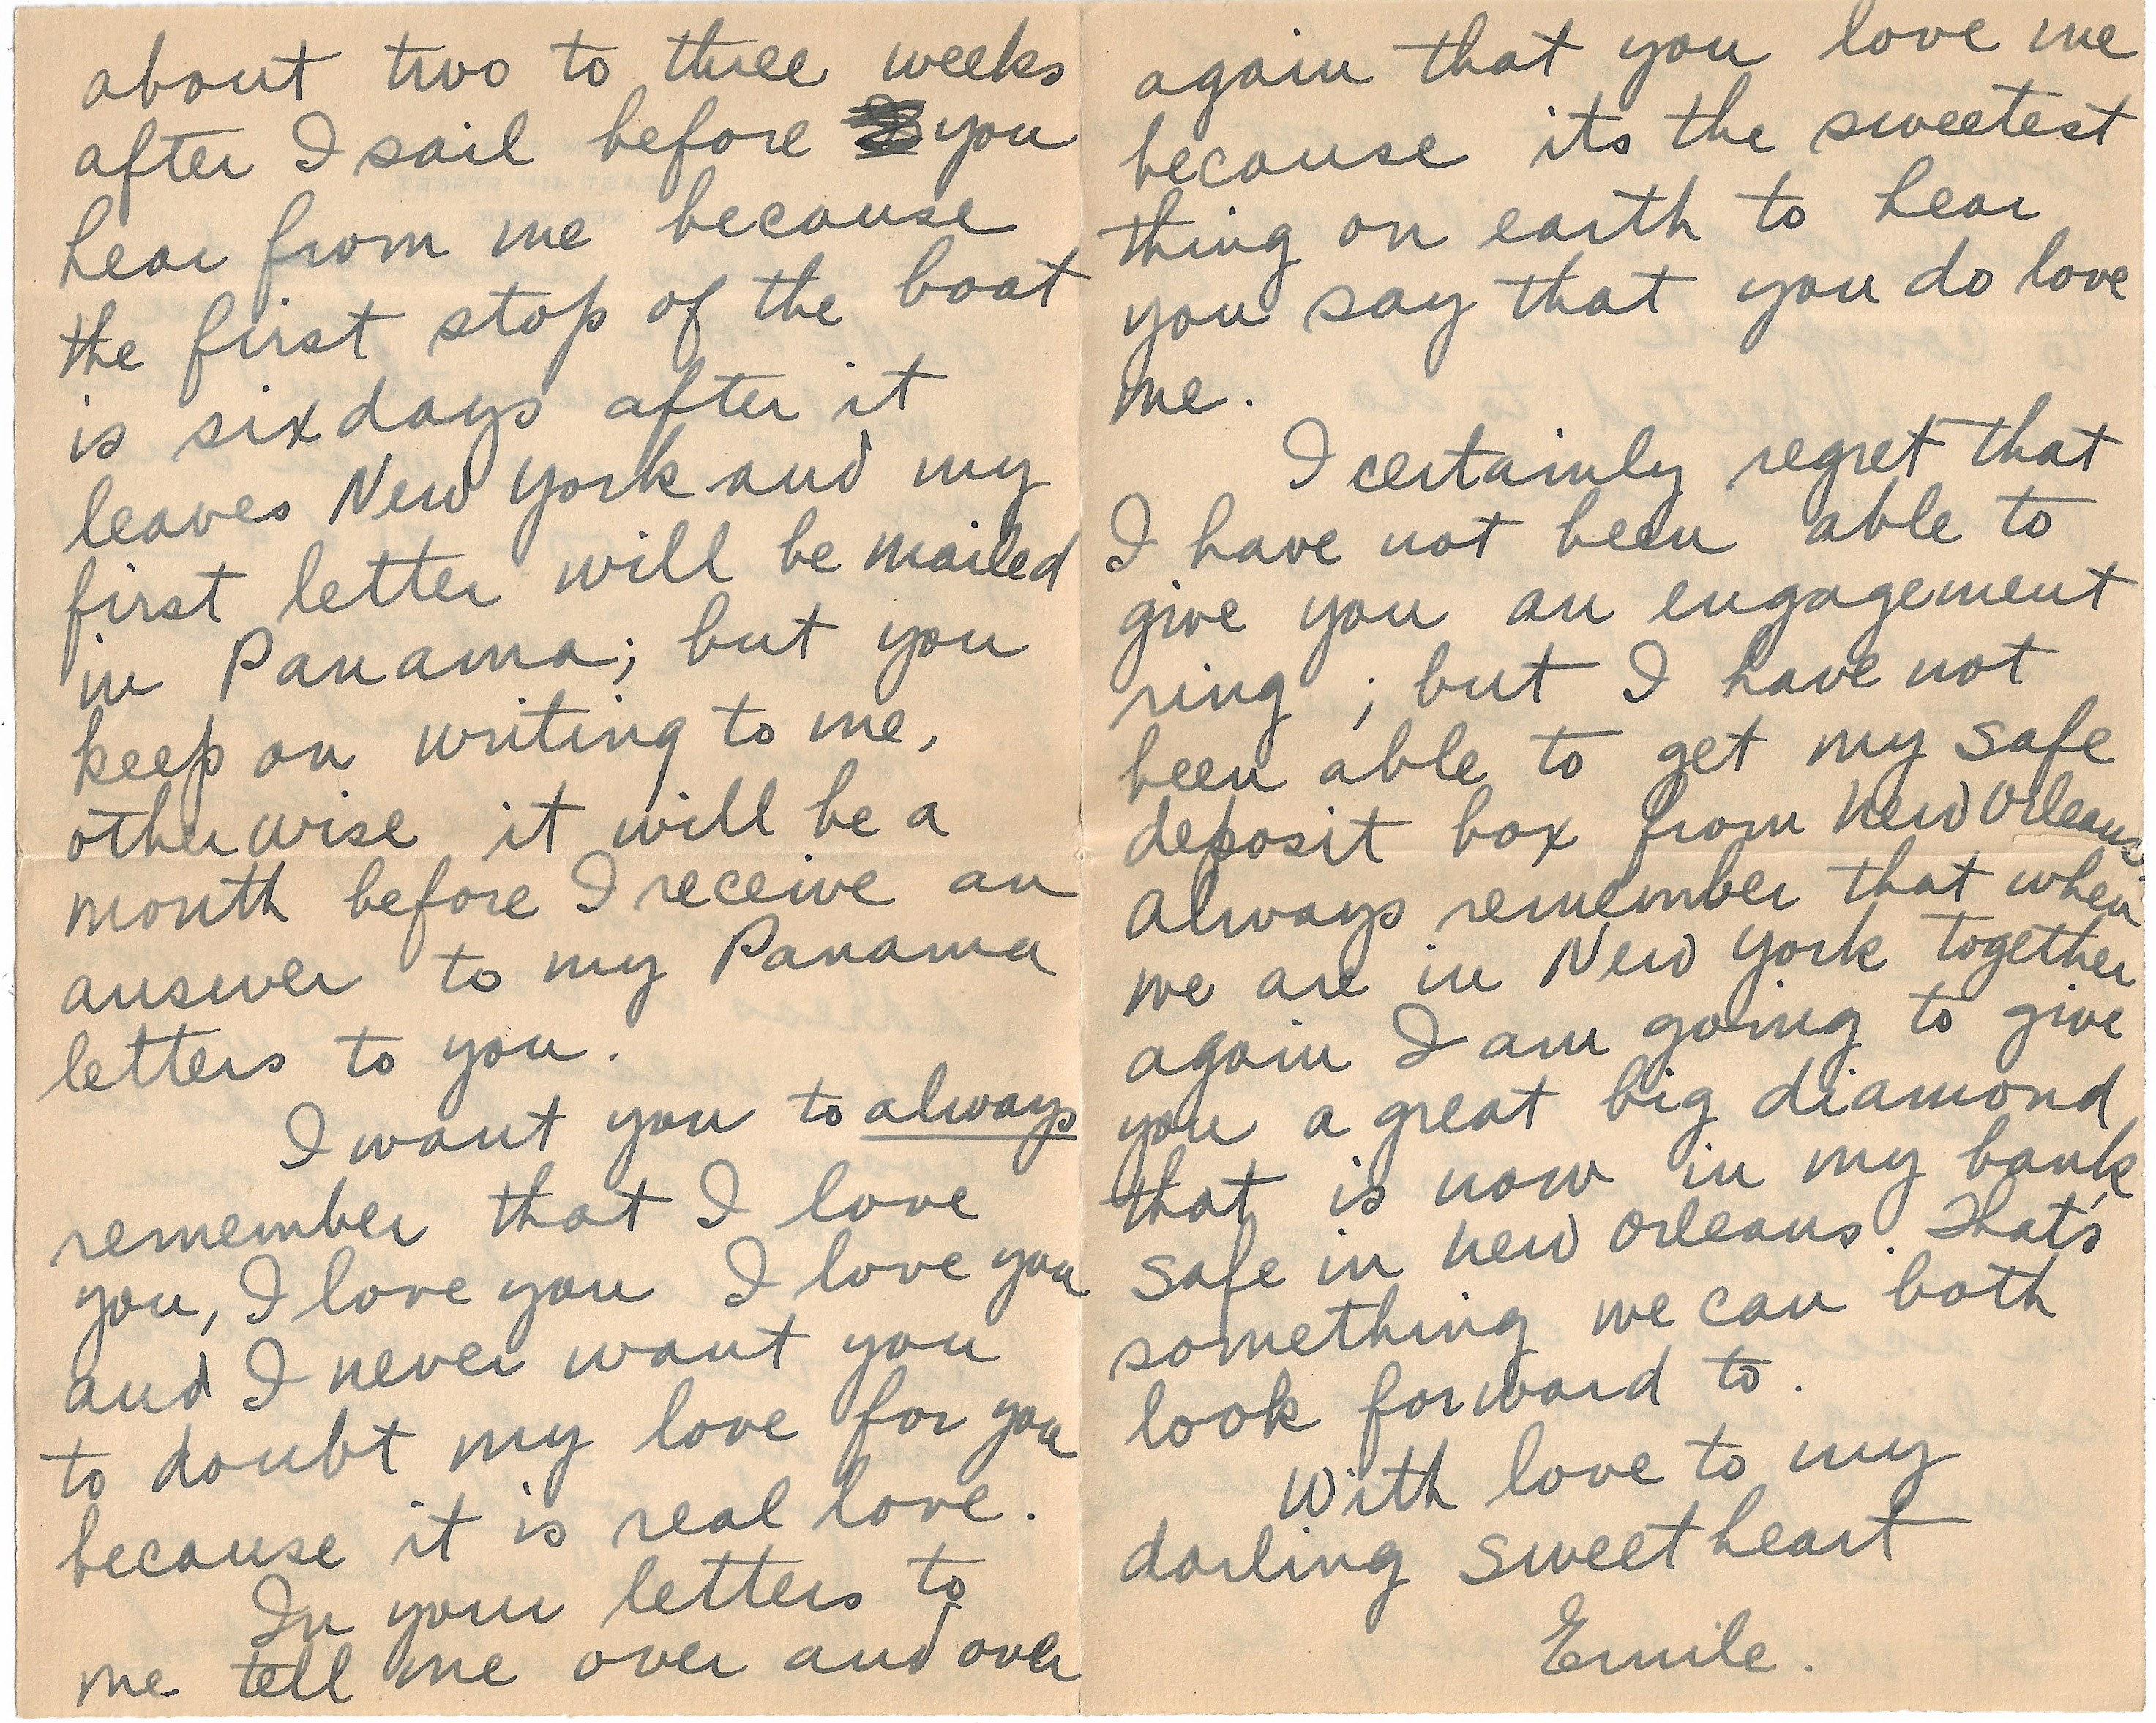 about two to three weeks
after I sail before you
hear from me because
the first stop of the boat
is six days after it
leaves New York and my
first letter will be mailed
in Panama; but you
keep on writing to me,
otherwise it will be a
month before I receive an
answer to my Panama
letters to you.
I want you to always
remember that I love
you, I love you I love you
and I never want you
to doubt my love for you
because it is real love.
In your letters to
me tell me over and over
again that you love me
because its the sweetest
thing on earth to hear
you say that you do love
me.
I certainly regret that
I have not been able to
give you an engagement
ring; but I have not
been able to get my safe
deposit box from New Orleans.
Always remember that when
we are in New York together
again I am going to give
you a great big diamond
that is now in my bank
safe in New Orleans. That's
something we can both
look forward to.
With love to my
darling sweetheart
Emile.